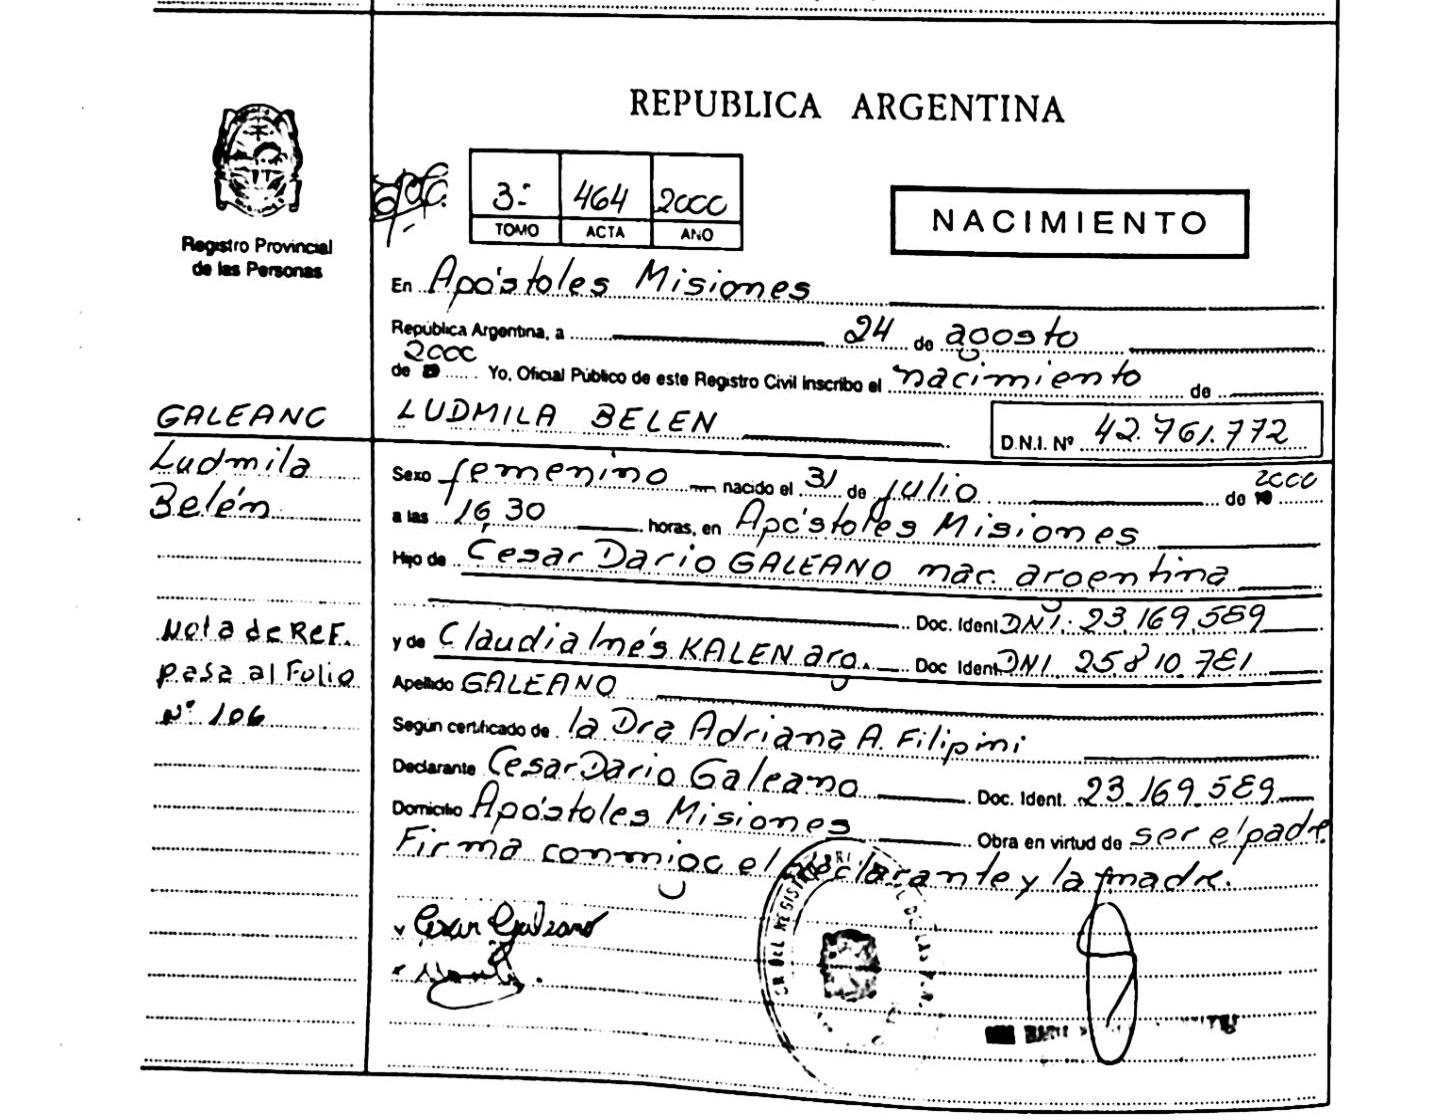 REPUBLICA ARGENTINA
3:
464
2000
TOMO
ACTA
AÑO
NACIMIENTO
Registro Provincial
de las Personas
En Apóstoles Misiones
República Argentina, a 24 de agosto
2000
de 19 Yo, Oficial Público de este Registro Civil inscribo el nacimiento de
GALEANO
LUDMILA BELEN
D.N.I. Nº 42.761.772
Ludmila
Belén
Sexo femenino nacido el 31 de julio de 19 2000
a las 16,30 horas, en Apóstoles Misiones
Hijo de Cesar Dario GALEANO nac. argentina
Doc. Ident DNI. 23.169.589
y de Claudia Inés KALEN arg. Doc Ident DNI 25.810.781
Apellido GALEANO
Nota de REF.
pasa al Folio
Nº 106
Según certificado de la Dra Adriana A. Filipini
Declarante Cesar Dario Galeano Doc. Ident. 23.169.589
Domicilio Apóstoles Misiones Obra en virtud de ser el padre
Firma conmigo el declarante y la madre.
Cesar Galeano